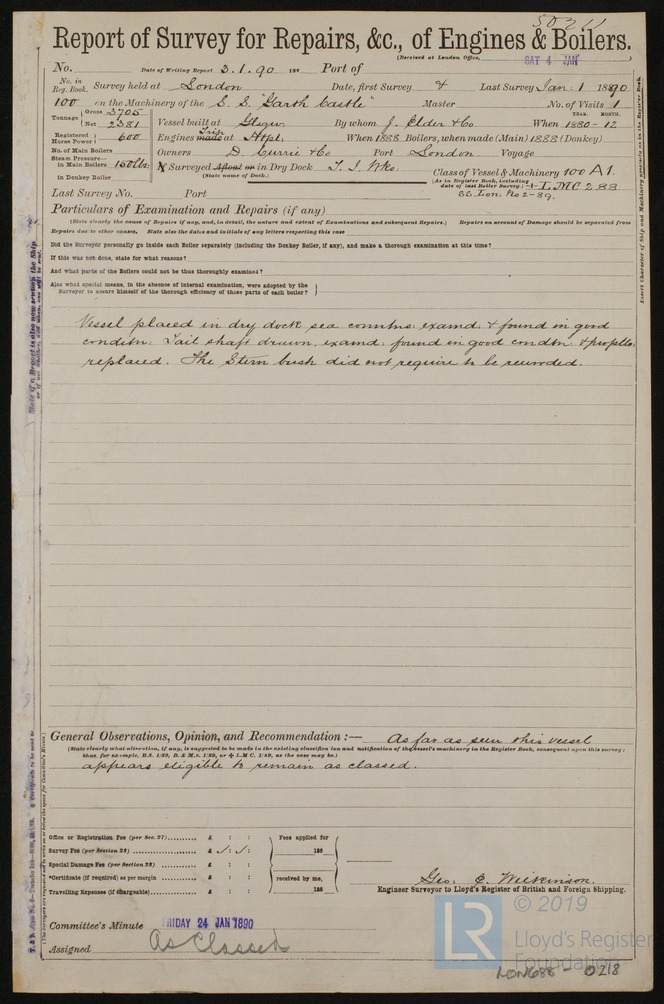 50211
Report of Survey for Repairs, &c., of Engines & Boilers.
(Received at London Office, SAT 4 JAN )
No. Date of Writing Report 3.1.90 188 Port of
No. in Reg. Book. Survey held at London Date, first Survey & Last Survey Jan: 1 1890
100 on the Machinery of the S.S. "Garth Castle" Master No. of Visits 1
Tonnage Gross 3705 Net 2381 Vessel built at Glasgw By whom J. Elder & Co When 1880-12 YEAR. MONTH.
Registered Horse Power 600 Engines made at Hepl. When 1888 Boilers, when made (Main) 1888 (Donkey)
No. of Main Boilers Owners D. Currie & Co Port London Voyage
Steam Pressure— in Main Boilers 150lbs. Surveyed Afloat or in Dry Dock T. I. Wks. Class of Vessel & Machinery 100 A1.
in Donkey Boiler (State name of Dock.) (As in Register Book, including date of last Boiler Survey.) + LMC 2 88
SS. Lon. No 2-89.
Last Survey No. Port
Particulars of Examination and Repairs (if any)
(State clearly the cause of Repairs if any, and, in detail, the nature and extent of Examinations and subsequent Repairs.) Repairs on account of Damage should be separated from
Repairs due to other causes. State also the dates and initials of any letters respecting this case
Did the Surveyor personally go inside each Boiler separately (including the Donkey Boiler, if any), and make a thorough examination at this time?
If this was not done, state for what reasons?
And what parts of the Boilers could not be thus thoroughly examined?
Also what special means, in the absence of internal examination, were adopted by the
Surveyor to assure himself of the thorough efficiency of those parts of each boiler?
Vessel placed in dry dock sea connctns: examd: & found in good
conditn: Tail shaft drawn, examd: found in good condtn: & propeller
replaced. The Stern bush did not require to be rewooded.
General Observations, Opinion, and Recommendation:— As far as seen this vessel
(State clearly what alteration, if any, is suggested to be made in the existing classification and notification of the vessel's machinery in the Register Book, consequent upon this survey;
thus, for example, B.S. 1/89, B. & M.S. 1/89, or + L.M.C. 1/89, as the case may be.)
appears eligible to remain as classed.
Office or Registration Fee (per Sec. 27) £ : : Fees applied for
Survey Fee (per Section 28) £ : : 188
Special Damage Fee (per Section 28) £ : :
Certificate (if required) as per margin £ : : received by me,
Travelling Expenses (if chargeable) £ : : 188
Geo. E. Wilkinson.
Engineer Surveyor to Lloyd's Register of British and Foreign Shipping.
Committee's Minute FRIDAY 24 JAN 1890
Assigned As Classed
LR © 2019
Lloyd's Register
Foundation
LON688 - 0218
Insert Character of Ship and Machinery precisely as in the Register Book.